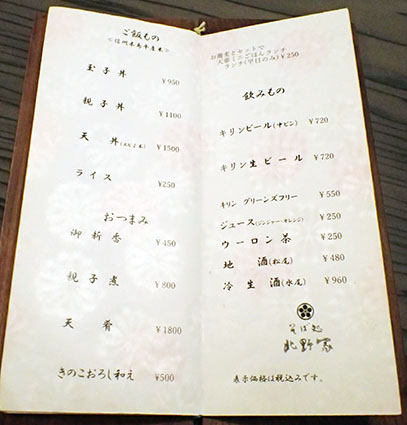 ご飯もの
<信州木島平産米>
玉子丼 ¥950
親子丼 ¥1100
天丼(えび2本) ¥1500
ライス ¥250
おつまみ
御新香 ¥450
親子煮 ¥800
天肴 ¥1800
きのこおろし和え ¥500
お蕎麦とセットで
天丼ミニごはんランチ
ランチ(平日のみ)¥250
飲みもの
キリンビール(中ビン) ¥720
キリン生ビール ¥720
キリン グリーンズフリー ¥550
ジュース(ジンジャー・オレンジ) ¥250
ウーロン茶 ¥250
地酒(松尾) ¥480
冷生酒(水尾) ¥960
そば処
北野家
表示価格は税込みです。